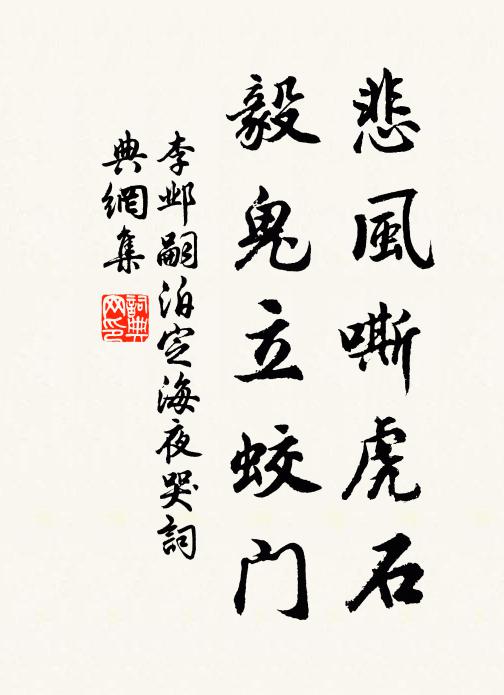 悲風嘶虎石
毅鬼立蛟门
李邺嗣泊定海夜哭詞
典網集
詞典網印